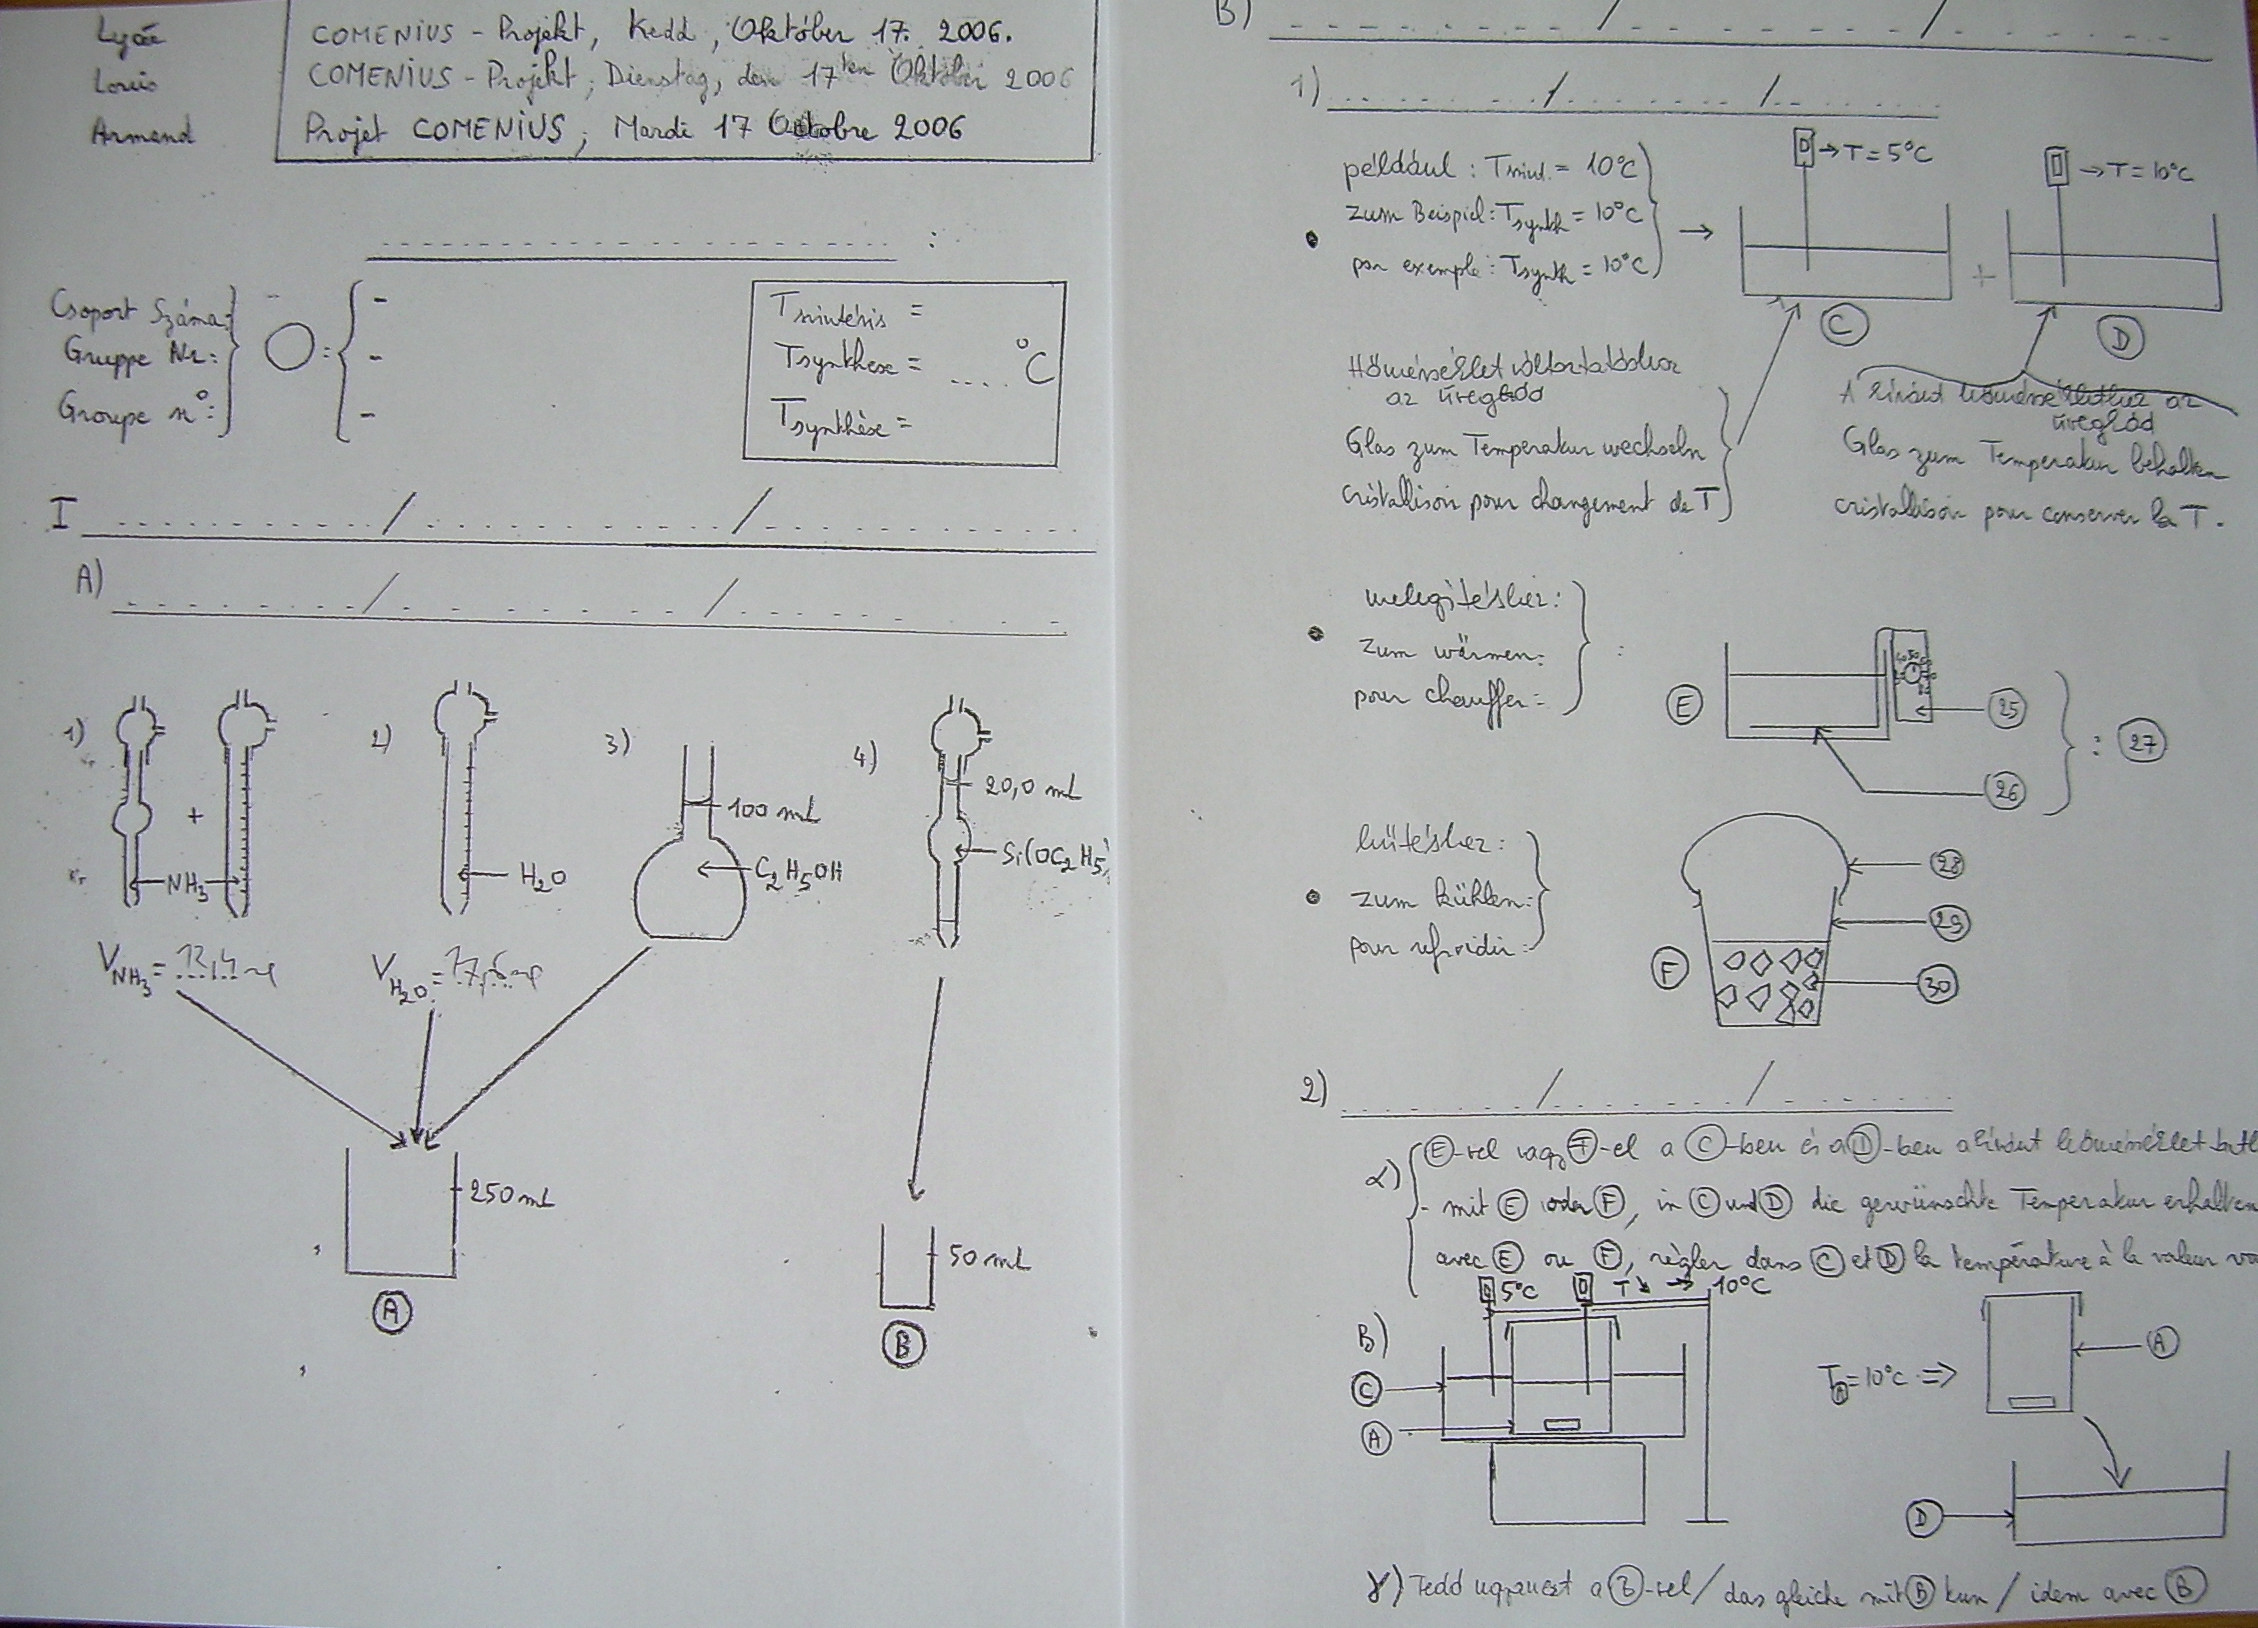 Lycée
Louis
Armand
COMENIUS - Projekt, Kedd, Október 17. 2006.
COMENIUS - Projekt, Dienstag, den 17ten Oktober 2006
Projet COMENIUS, Mardi 17 Octobre 2006
Csoport Száma:
Gruppe Nr:
Groupe n°:
Tszintézis =
Tsynthese = .... °C
Tsynthèse =
I
A)
1)
+
NH3
VNH3 = 12,4 ml
2)
H2O
VH2O =
3)
100 mL
C2H5OH
4)
20,0 mL
Si(OC2H5)
250 mL
A
50 mL
B
B)
1)
például : Tszint. = 10°C
zum Beispiel : Tsynth = 10°C
par exemple : Tsynth = 10°C
→ T = 5°C
→ T = 10°C
+
C
D
Hőmérséklet változtatáshoz
az üvegkád
Glas zum Temperatur wechseln
cristallisoir pour changement de T
A kívánt hőmérséklethez az
üvegkád
Glas zum Temperatur behalten
cristallisoir pour conserver la T.
melegítéshez :
zum wärmen :
pour chauffer :
E
25
26
: 27
hűtéshez :
zum kühlen :
pour refroidir :
F
28
29
30
2)
α)
E-vel vagy F-el a C-ben és a D-ben a kívánt hőmérséklet
- mit E oder F, in C und D die gewünschte Temperatur erhalten
avec E ou F, régler dans C et D la température à la valeur
5°C
T ↘ → 10°C
B)
C
A
TA = 10°C ⇒
A
D
γ) Tedd ugyanezt a B-vel / das gleiche mit B tun / idem avec B